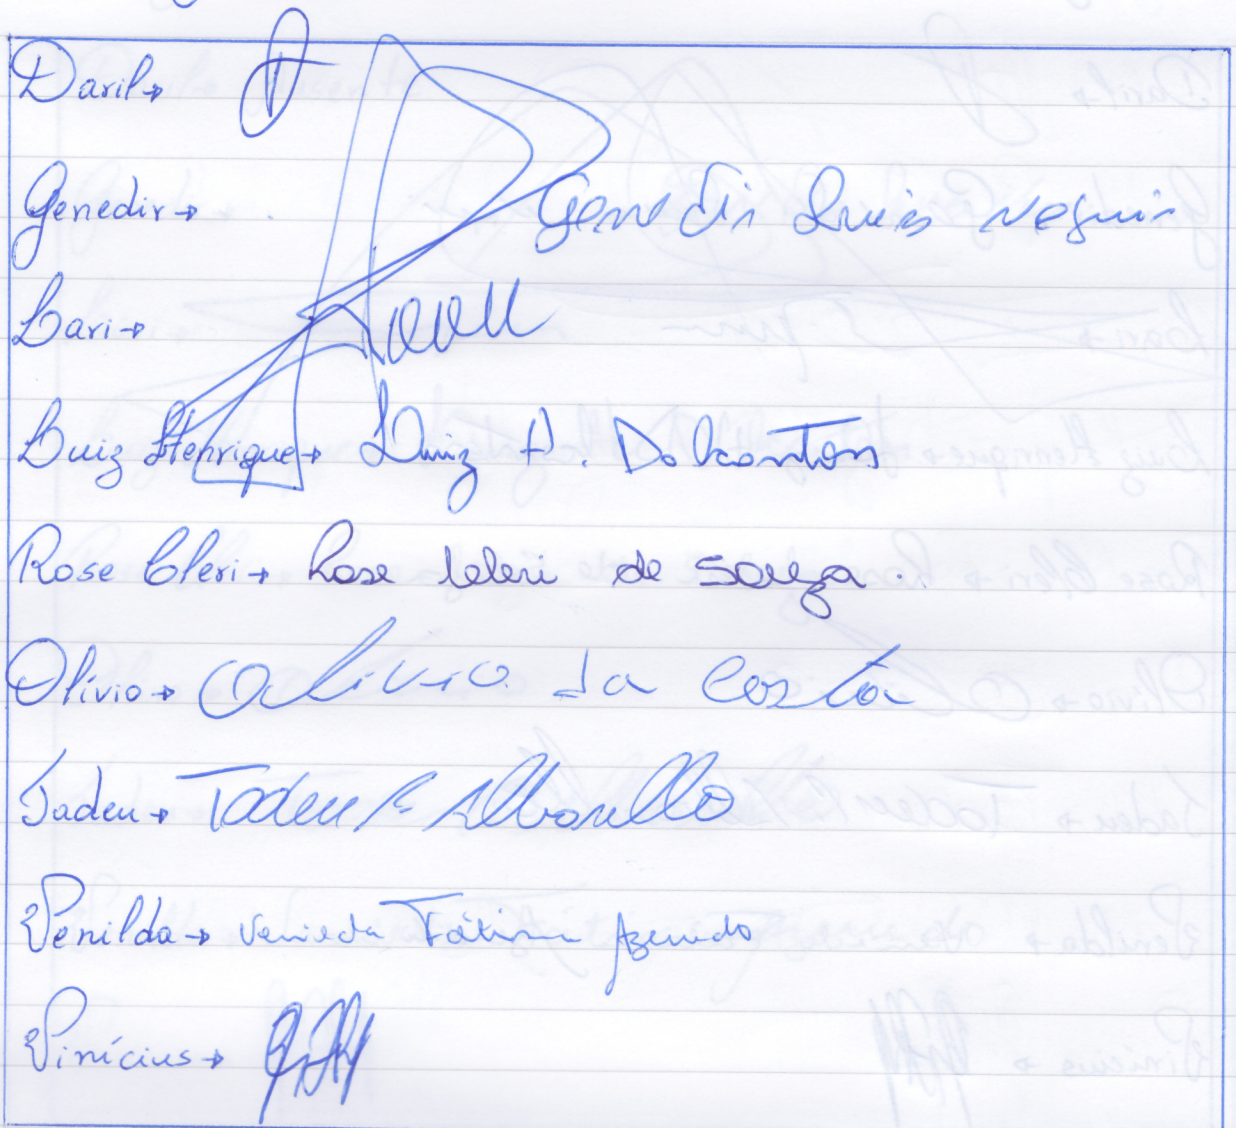 Daril→
Genedir→ Genedir Luis Neguin
Lari→
Luiz Henrique→ Luiz H.
Rose Cleri→ Rose Cleri de Souza.
Olívio→ Olivio da Costa
Tadeu→ Tadeu Albarello
Venilda→ Venilda Fátima Azevedo
Vinícius→